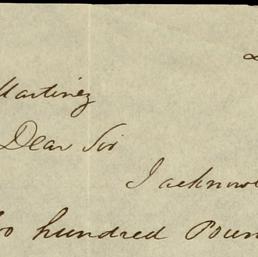 Martinez
Dear Sir
I acknow
hundred Poun